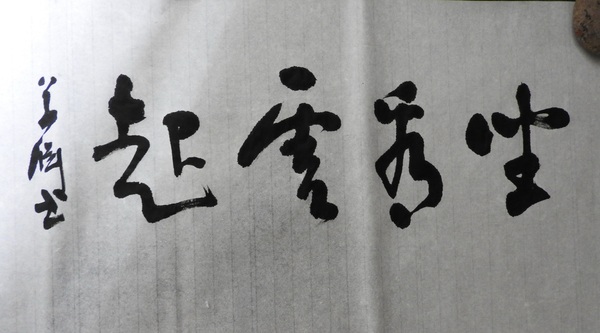 坐看雲起